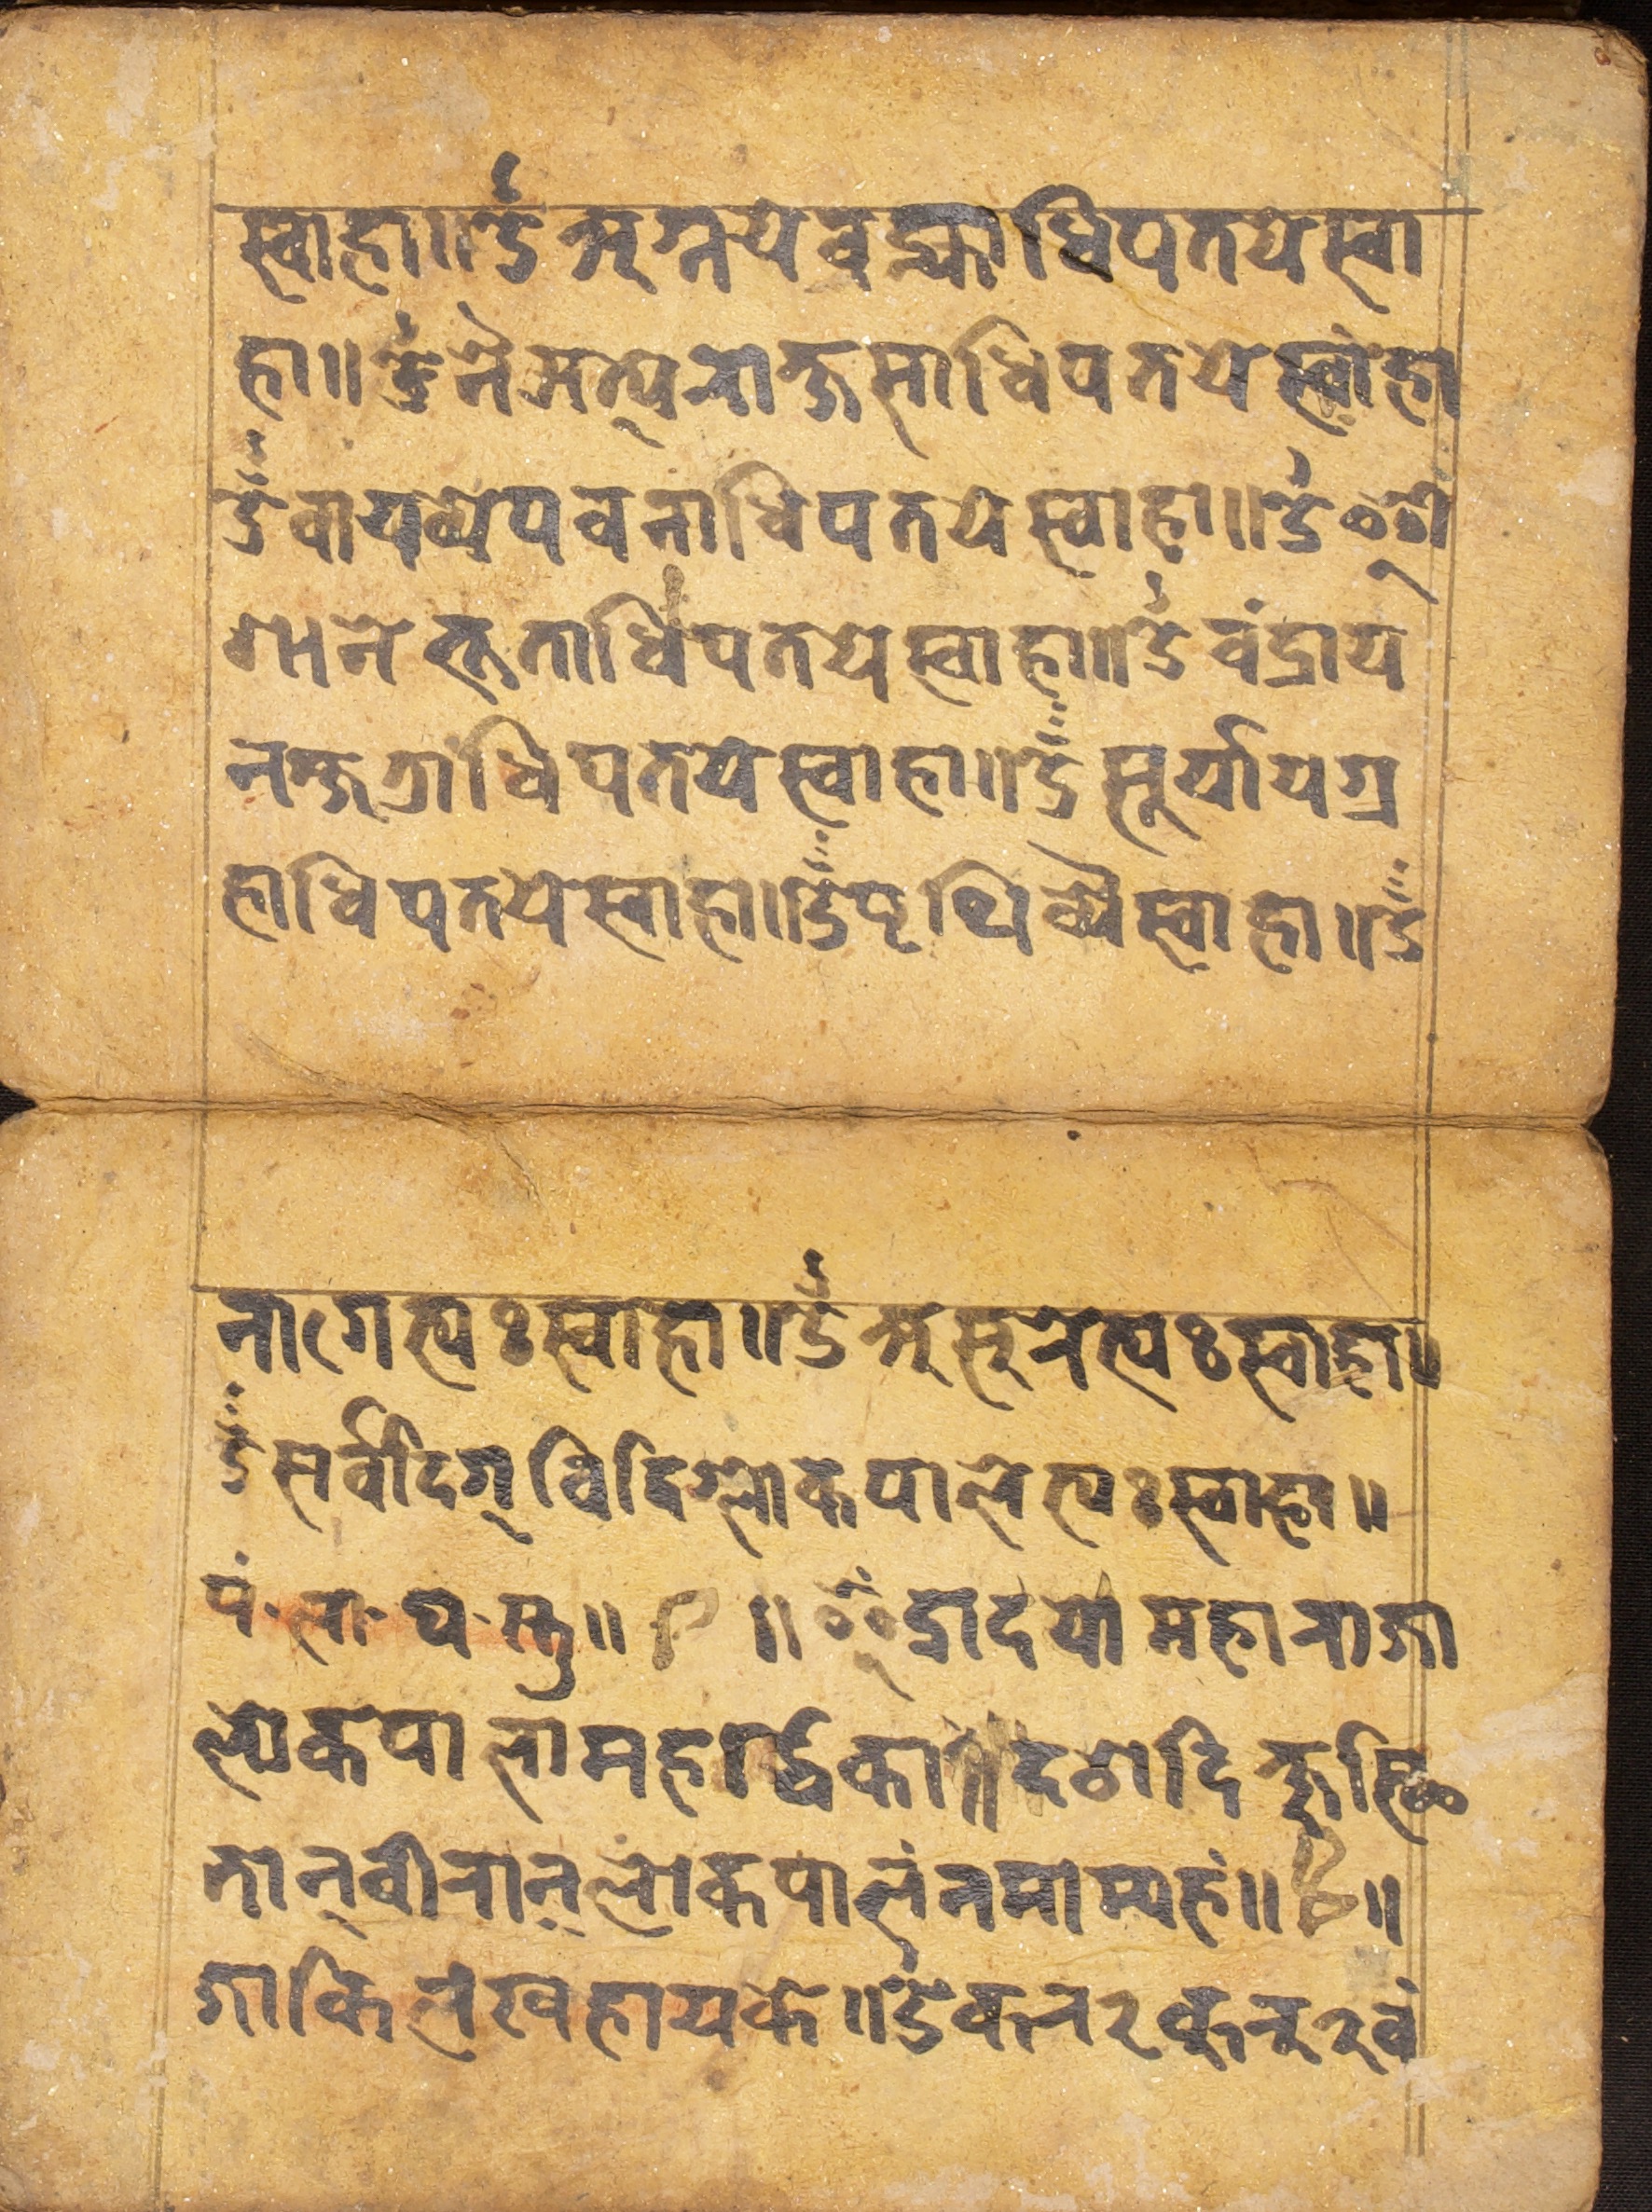 स्वाहा॥ॐ अग्नये वह्न्याधिपतये स्वा
हा॥ॐ नैऋत्ये राक्षसाधिपतये स्वाहा
ॐ वायव्ये पवनाधिपतये स्वाहा॥ॐ ई
शाने भूताधिपतये स्वाहा॥ॐ चंद्राय
नक्षत्राधिपतये स्वाहा॥ॐ सूर्याय ग्र
हाधिपतये स्वाहा॥ॐ पृथिव्यै स्वाहा॥ॐ
नागेभ्यः स्वाहा॥ॐ असुरेभ्यः स्वाहा॥
ॐ सर्वदिग्विदिग्लोकपालेभ्यः स्वाहा॥
पं. ला. घ. स्तु॥ ॥ इंद्रादयो महाराजा
लोकपाला महर्द्धिका॥दशदिक्षु स्थि
तान् वीरान् लोकपालं नमाम्यहं॥ ॥
जाकि लंखहायके॥ॐ कर२ कुरु२ वं